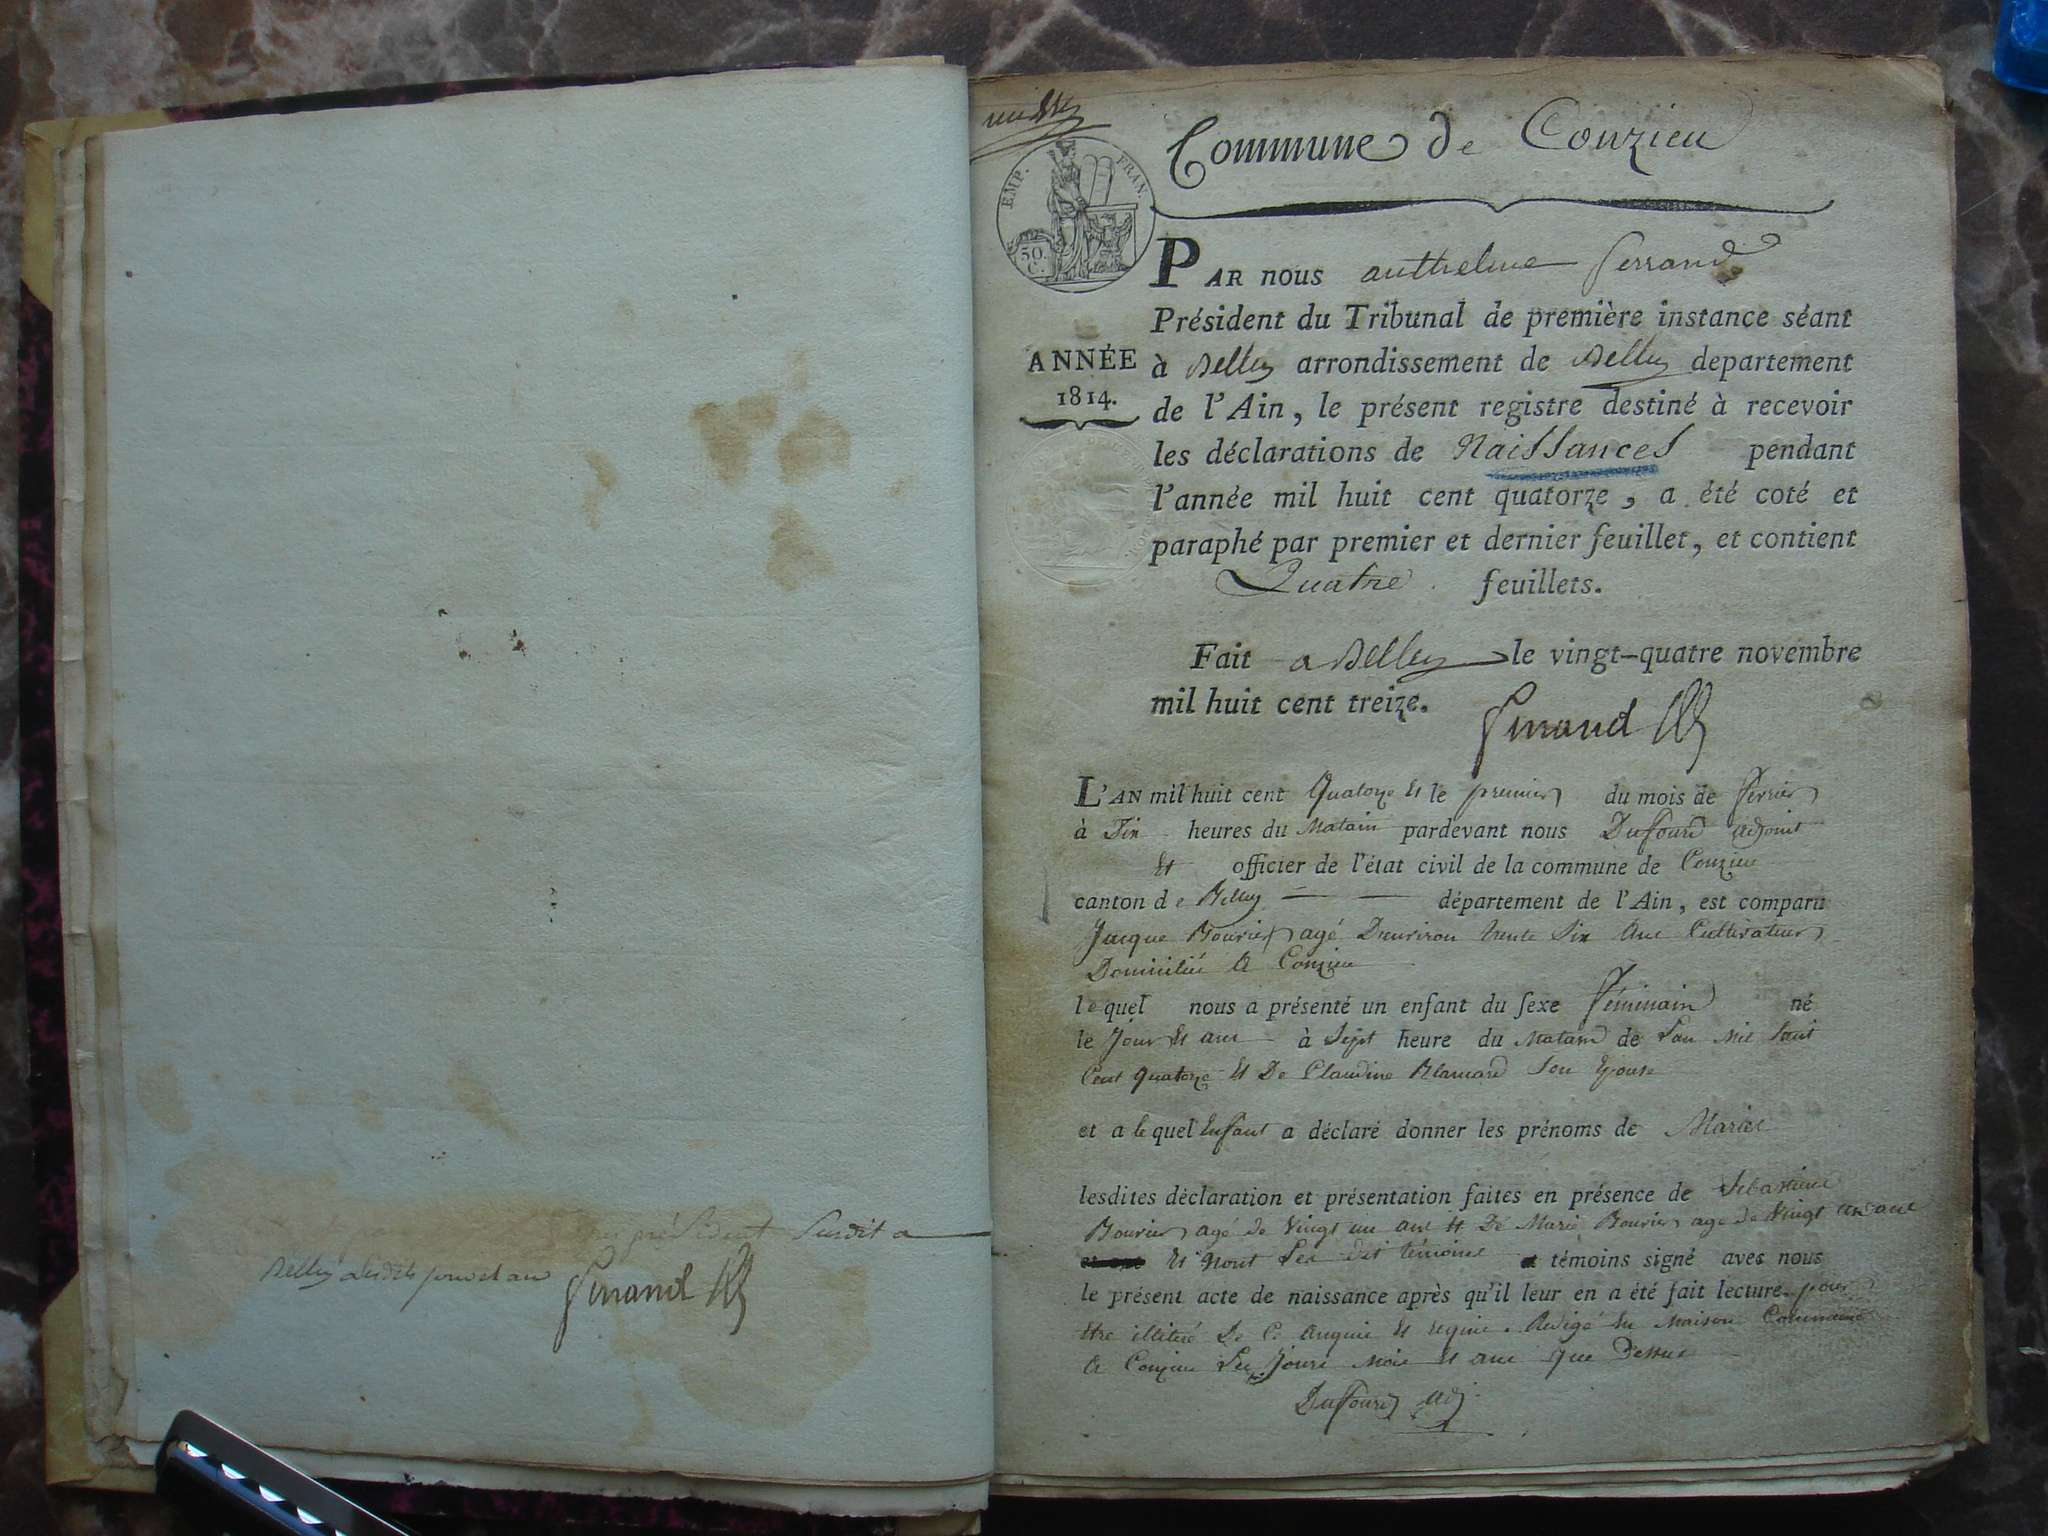 président Susdit a
Belley lesdits jour et an Ferrand
Commune de Conzieu
EMP. FRAN.
50. C.
PAR nous anthelme ferrand
Président du Tribunal de première instance séant
ANNÉE 1814.
à Belley arrondissement de Belley departement
de l'Ain, le présent registre destiné à recevoir
les déclarations de Naissances pendant
l'année mil huit cent quatorze, a été coté et
paraphé par premier et dernier feuillet, et contient
Quatre feuillets.
Fait a Belley le vingt-quatre novembre
mil huit cent treize. Ferrand
L'AN mil huit cent Quatorze Et le premier du mois de février
à Dix heures du Matain pardevant nous Duffourd adjoint
Et officier de l'état civil de la commune de Conzieu
canton de Belley département de l'Ain, est comparu
Jacque Bouvier agé Denviron trente Six ans Cultivateur
Domicilié A Conzieu
lequel nous a présenté un enfant du sexe féminain né
le Jour Et an à Sept heure du Matain de Lan Mil huit
Cent Quatorze Et De Claudine Blancard Son Epouse
et a lequel Enfant a déclaré donner les prénoms de Marie
lesdites déclaration et présentation faites en présence de Sebastien
Bouvier agé de Vingt un ans Et De Marie Bouvier age de Vingt un ans
Et Nont Les dit témoins témoins signé avec nous
le présent acte de naissance après qu'il leur en a été fait lecture. pour
Etre illitéré De C. Anquie Et requie. Redigé En Maison Commune
A Conzieu Les Jours Mois Et ans Que Dessus
Duffourd adj